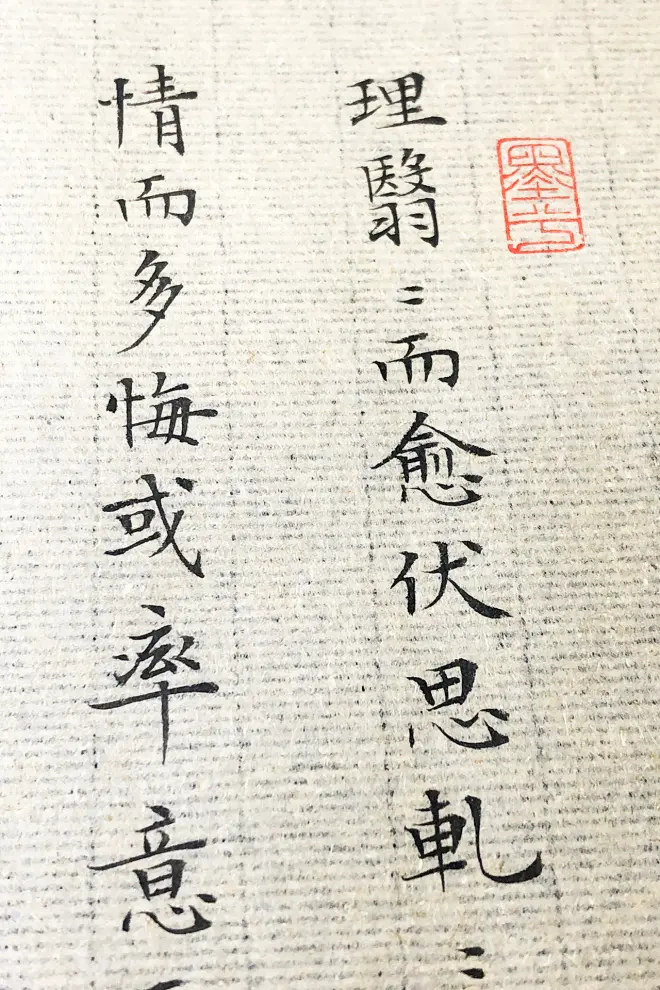 理翳〻而愈伏思軋〻
情而多悔或率意